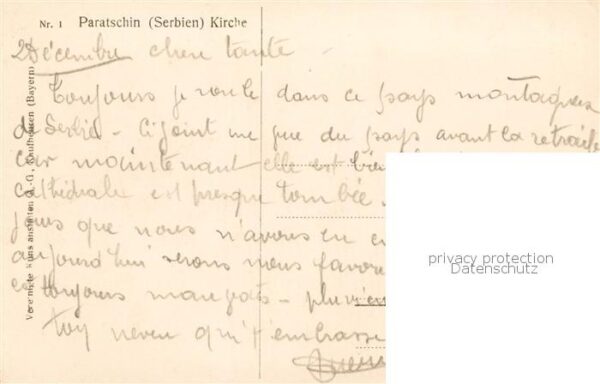 Nr. 1 Paratschin (Serbien) Kirche
2 Décembre chere tante -
Toujours je roule dans ce pays montagneux
de Serbie - Ci joint une vue du pays avant la retraite
car maintenant elle est bien
cathédrale est presque tombée.
jours que nous n'avons eu
aujourd'hui serons nous
toujours
Ton neveu qui t'embrasse
Vereinigte Kunstanstalten A.-G., Kaufbeuren (Bayern)
privacy protection
Datenschutz